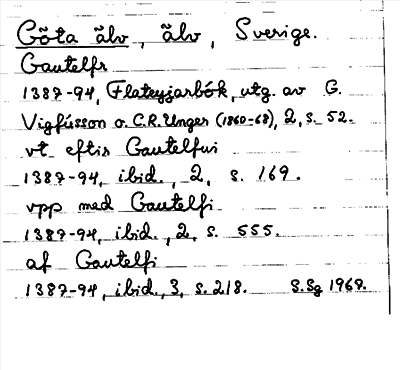 Göta älv, älv, Sverige.
Gautelfr
1387-94, Flateyjarbók, utg. av G.
Vigfússon o. C.R. Unger (1860-68), 2, s. 52.
vt eftir Gautelfui
1387-94, ibid., 2, s. 169.
vpp med Gautelfi
1387-94, ibid., 2, s. 555.
af Gautelfi
1387-94, ibid., 3, s. 218. S.Sg 1967.